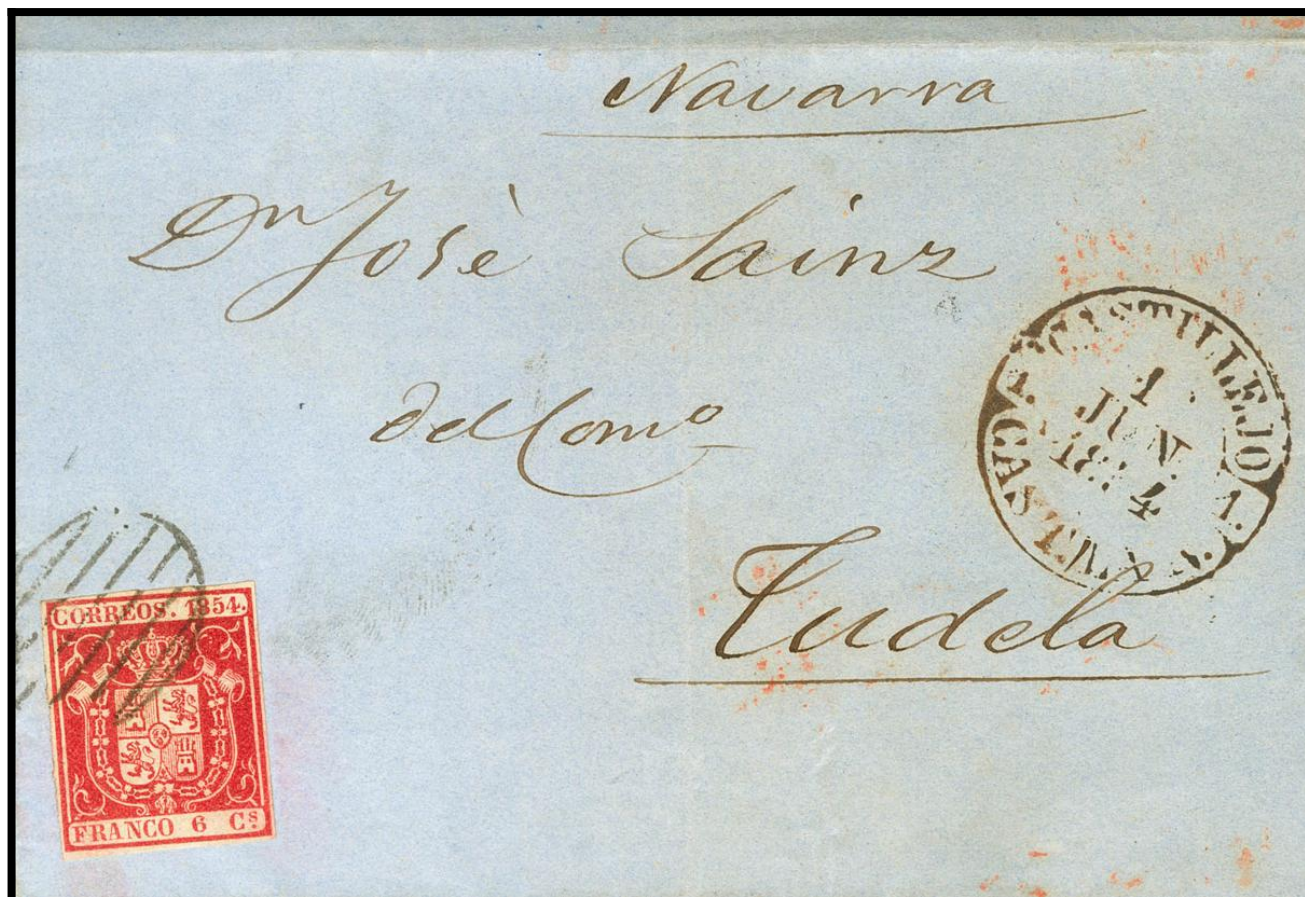 Navarra
Dn José Sainz
del Como
Tudela
CASTILLEJO
1
JUN.
18 4
1.
1.
CORREOS. 1854.
FRANCO 6 Cs